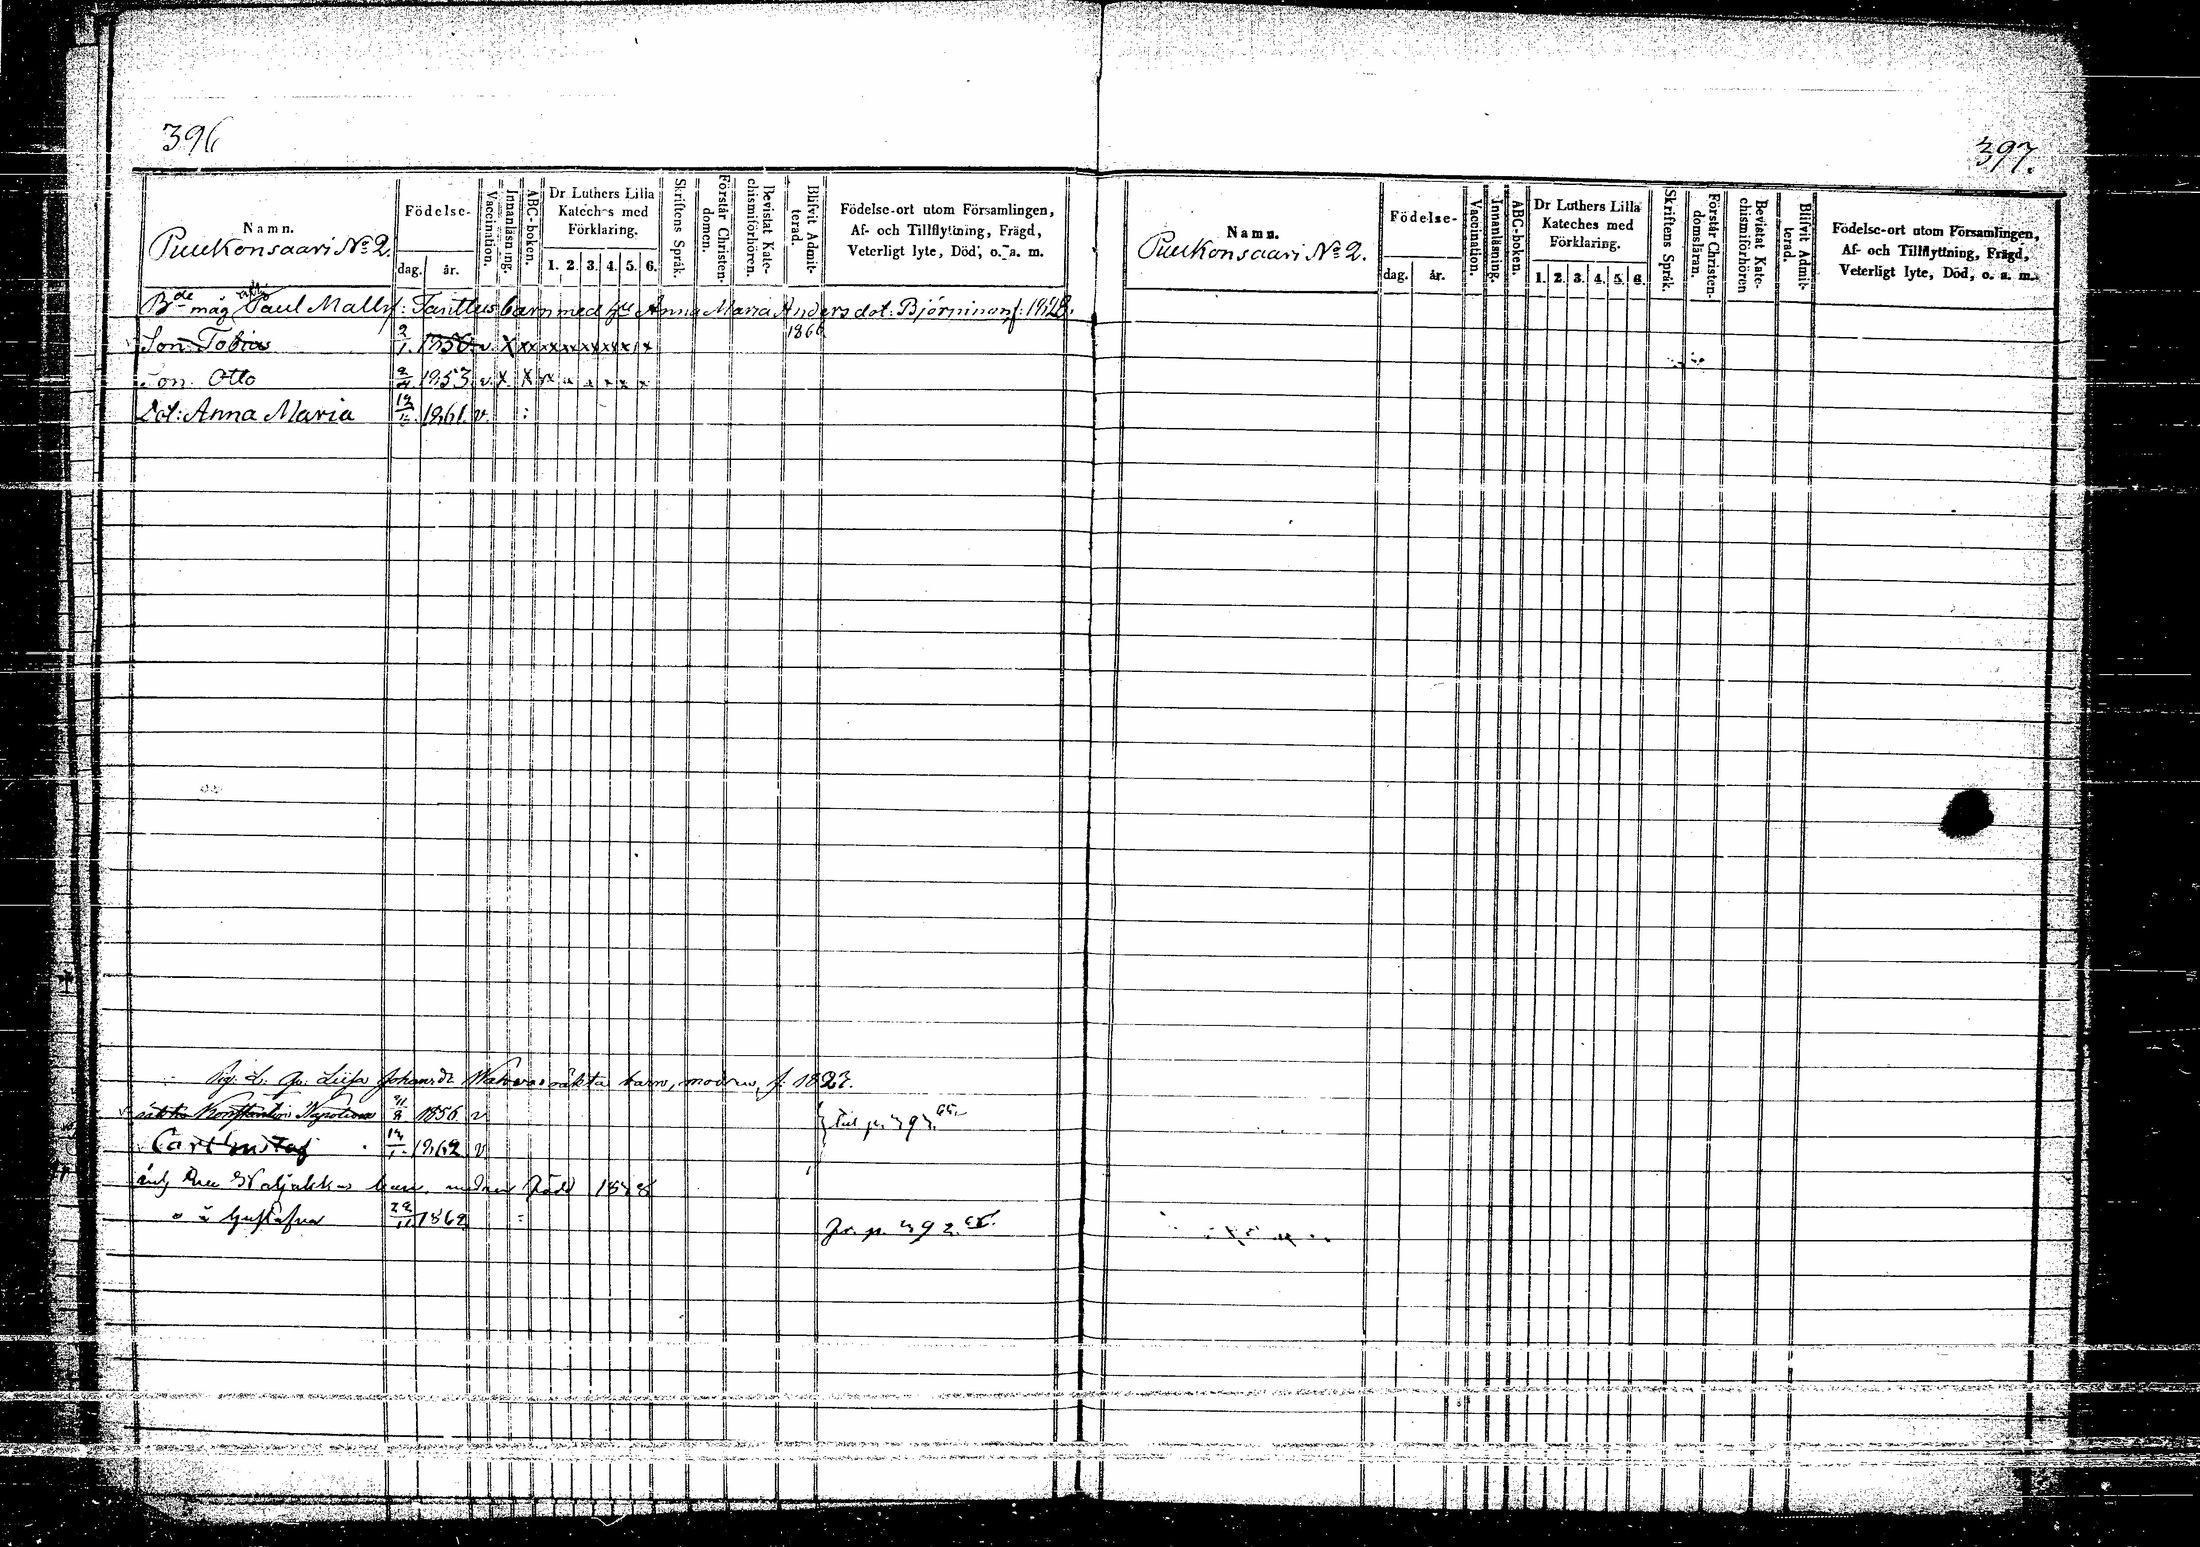 396
Namn.
Puukonsaari No 2.
Födelse-
dag. år.
Vaccination.
Innanläsning.
ABC-boken.
Dr Luthers Lilla
Kateches med
Förklaring.
1. 2. 3. 4. 5. 6.
Skriftens Språk.
Förstår Christen-
domen.
Bevistat Kate-
chismiförhören.
Blifvit Admit-
terad.
Födelse-ort utom Församlingen,
Af- och Tillflyttning, Frägd,
Veterligt lyte, Död, o. a. m.
Bde måg Paul barn med Anna Maria Anders dot: Björninen f: 1828.
Son Tobias 2/1 1850 v. X xx xx xx xx xx x x 1866
Son Otto 1853 v. X X xx x x x x x
Dot: Anna Maria 1861. v. :
Liisa Johansdr oäkta barn, modren f: 1827.
1856 v
Carl Gustaf 1862 v
modren född
Gustafva 1862 :
397.
Namn.
Puukonsaari No 2.
Födelse-
dag. år.
Vaccination.
Innanläsning.
ABC-boken.
Dr Luthers Lilla
Kateches med
Förklaring.
1. 2. 3. 4. 5. 6.
Skriftens Språk.
Förstår Christen-
domsläran.
Bevistat Kate-
chismiförhören
Blifvit Admit-
terad.
Födelse-ort utom Församlingen,
Af- och Tillflyttning, Frägd,
Veterligt lyte, Död, o. a. m.